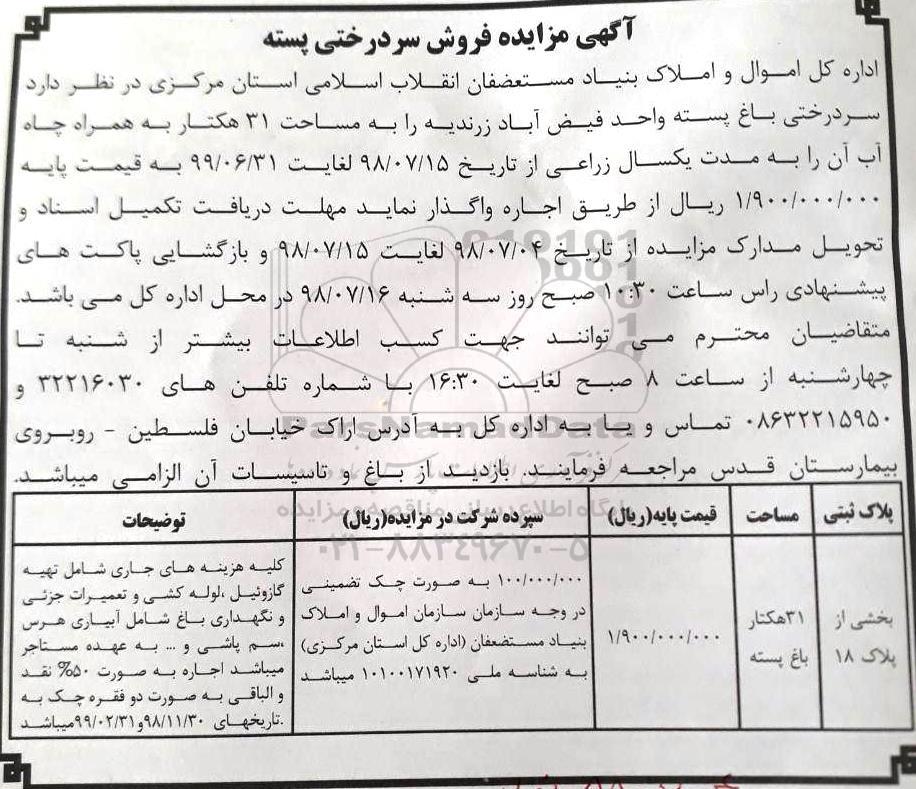 آگهی مزایده فروش سردرختی پسته
اداره کل اموال و املاک بنیاد مستعضفان انقلاب اسلامی استان مرکزی در نظر دارد
سردرختی باغ پسته واحد فیض آباد زرندیه را به مساحت ۳۱ هکتار به همراه چاه
آب آن را به مدت یکسال زراعی از تاریخ ۹۸/۰۷/۱۵ لغایت ۹۹/۰۶/۳۱ به قیمت پایه
۱/۹۰۰/۰۰۰/۰۰۰ ریال از طریق اجاره واگذار نماید مهلت دریافت تکمیل اسناد و
تحویل مدارک مزایده از تاریخ ۹۸/۰۷/۰۴ لغایت ۹۸/۰۷/۱۵ و بازگشایی پاکت های
پیشنهادی راس ساعت ۱۰:۳۰ صبح روز سه شنبه ۹۸/۰۷/۱۶ در محل اداره کل می باشد.
متقاضیان محترم می توانند جهت کسب اطلاعات بیشتر از شنبه تا
چهارشنبه از ساعت ۸ صبح لغایت ۱۶:۳۰ با شماره تلفن های ۳۲۲۱۶۰۳۰ و
۰۸۶۳۲۲۱۵۹۵۰ تماس و یا به اداره کل به آدرس اراک خیابان فلسطین - روبروی
بیمارستان قدس مراجعه فرمایند. بازدید از باغ و تاسیسات آن الزامی میباشد.
پلاک ثبتی مساحت قیمت پایه(ریال) سپرده شرکت در مزایده(ریال) توضیحات
بخشی از
پلاک ۱۸
۳۱هکتار
باغ پسته
۱/۹۰۰/۰۰۰/۰۰۰
۱۰۰/۰۰۰/۰۰۰ به صورت چک تضمینی
در وجه سازمان سازمان اموال و املاک
بنیاد مستضعفان (اداره کل استان مرکزی)
به شناسه ملی ۱۰۱۰۰۱۷۱۹۲۰ میباشد
کلیه هزینه های جاری شامل تهیه
گازوئیل ،لوله کشی و تعمیرات جزئی
و نگهداری باغ شامل آبیاری هرس
،سم پاشی و ... به عهده مستاجر
میباشد اجاره به صورت ۵۰% نقد
و الباقی به صورت دو فقره چک به
تاریخهای ۹۸/۱۱/۳۰و۹۹/۰۲/۳۱میباشد.
ParsNamadData
پایگاه اطلاع رسانی مناقصه و مزایده
۰۲۱-۸۸۳۴۹۶۷۰-۵